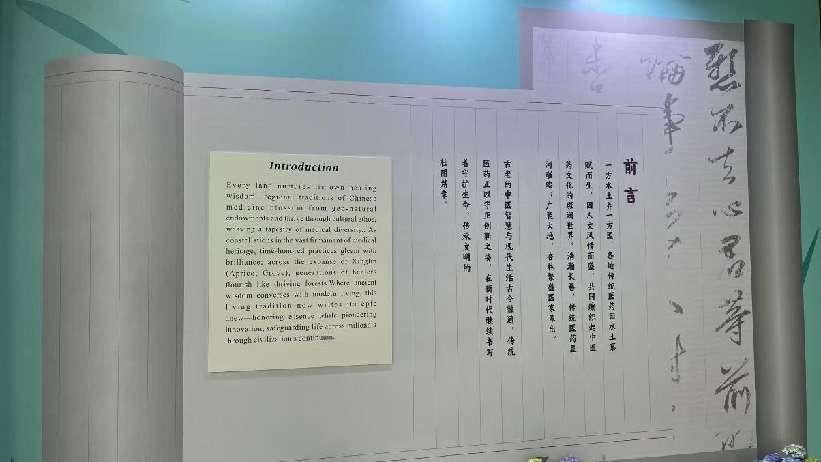 前言
一方水土养一方医，各地传统医药因水土禀
赋而生，因人文风情而盛，共同编织起中医
药文化的斑斓世界。浩瀚长卷，传统医药星
河璀璨；广袤大地，杏林繁盛医家辈出。
古老的中医智慧与现代生活古今融通，传统
医药正以守正创新之姿，在新时代继续书写
着守护生命、传承文明的
壮丽篇章。
Introduction
Every land nurtures its own healing
wisdom. Regional traditions of Chinese
medicine blossom from geo-natural
endowments and thrive through cultural ethos,
weaving a tapestry of medical diversity. As
constellations in the vast firmament of medical
heritage, time-honored practices gleam with
brilliance; across the expanse of Xinglin
(Apricot Grove), generations of healers
flourish like thriving forests. Where ancient
wisdom converges with modern living, this
living tradition now writes its epic
anew—honoring essence while pioneering
innovation, safeguarding life across millennia
through civilization's continuum.